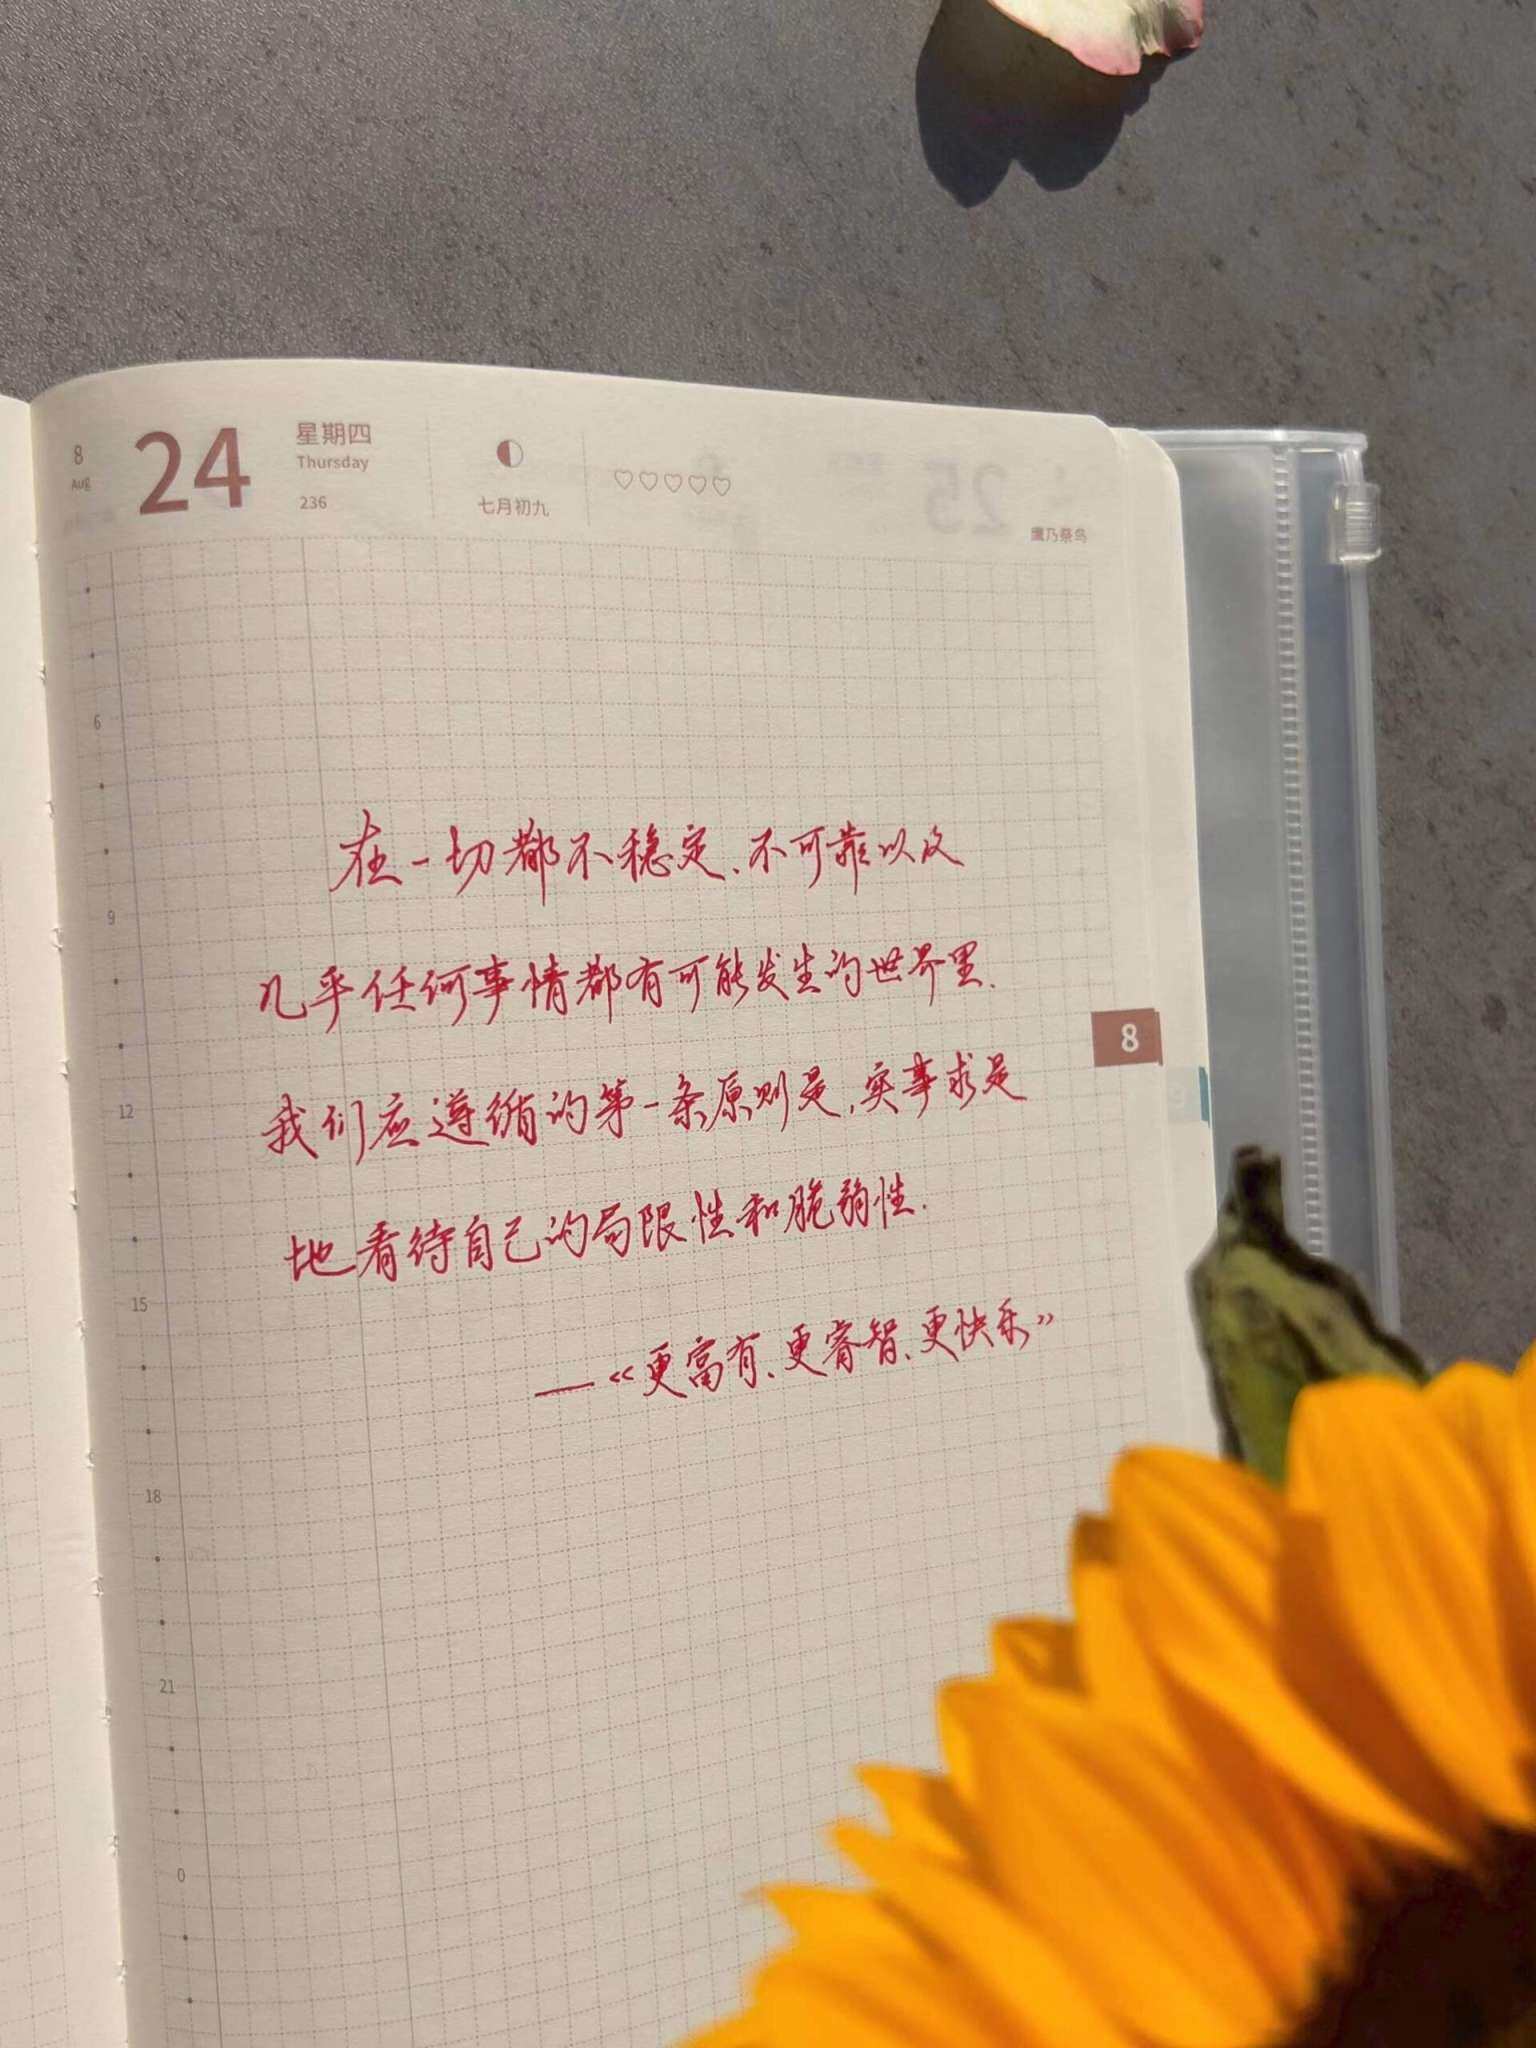 8
Aug
24
星期四
Thursday
236
七月初九
鹰乃祭鸟
25
6
9
12
15
18
21
0
8
9
在一切都不稳定、不可靠以及
几乎任何事情都有可能发生的世界里,
我们应遵循的第一条原则是,实事求是
地看待自己的局限性和脆弱性.
——《更富有、更睿智、更快乐》